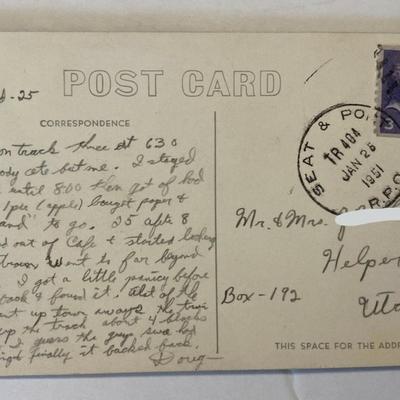 POST CARD
CORRESPONDENCE
-25
on track there at 630
body ate but me. I stayed
until 800 then got of had
1 pie (apple) bought paper &
and" to go. 25 after 8
out of Cafe & started looking
train went to far beyond
I got a little panicy before
back & found it. Alot of the
went up town anways the train
up the track about 4 blocks
I guess the guys
finally it backed back.
Doug-
SEAT & PO
TR 404
JAN 26
1951
R.P.O.
Mr. & Mrs.
Helper
Box-192
Uta
THIS SPACE FOR THE ADDR